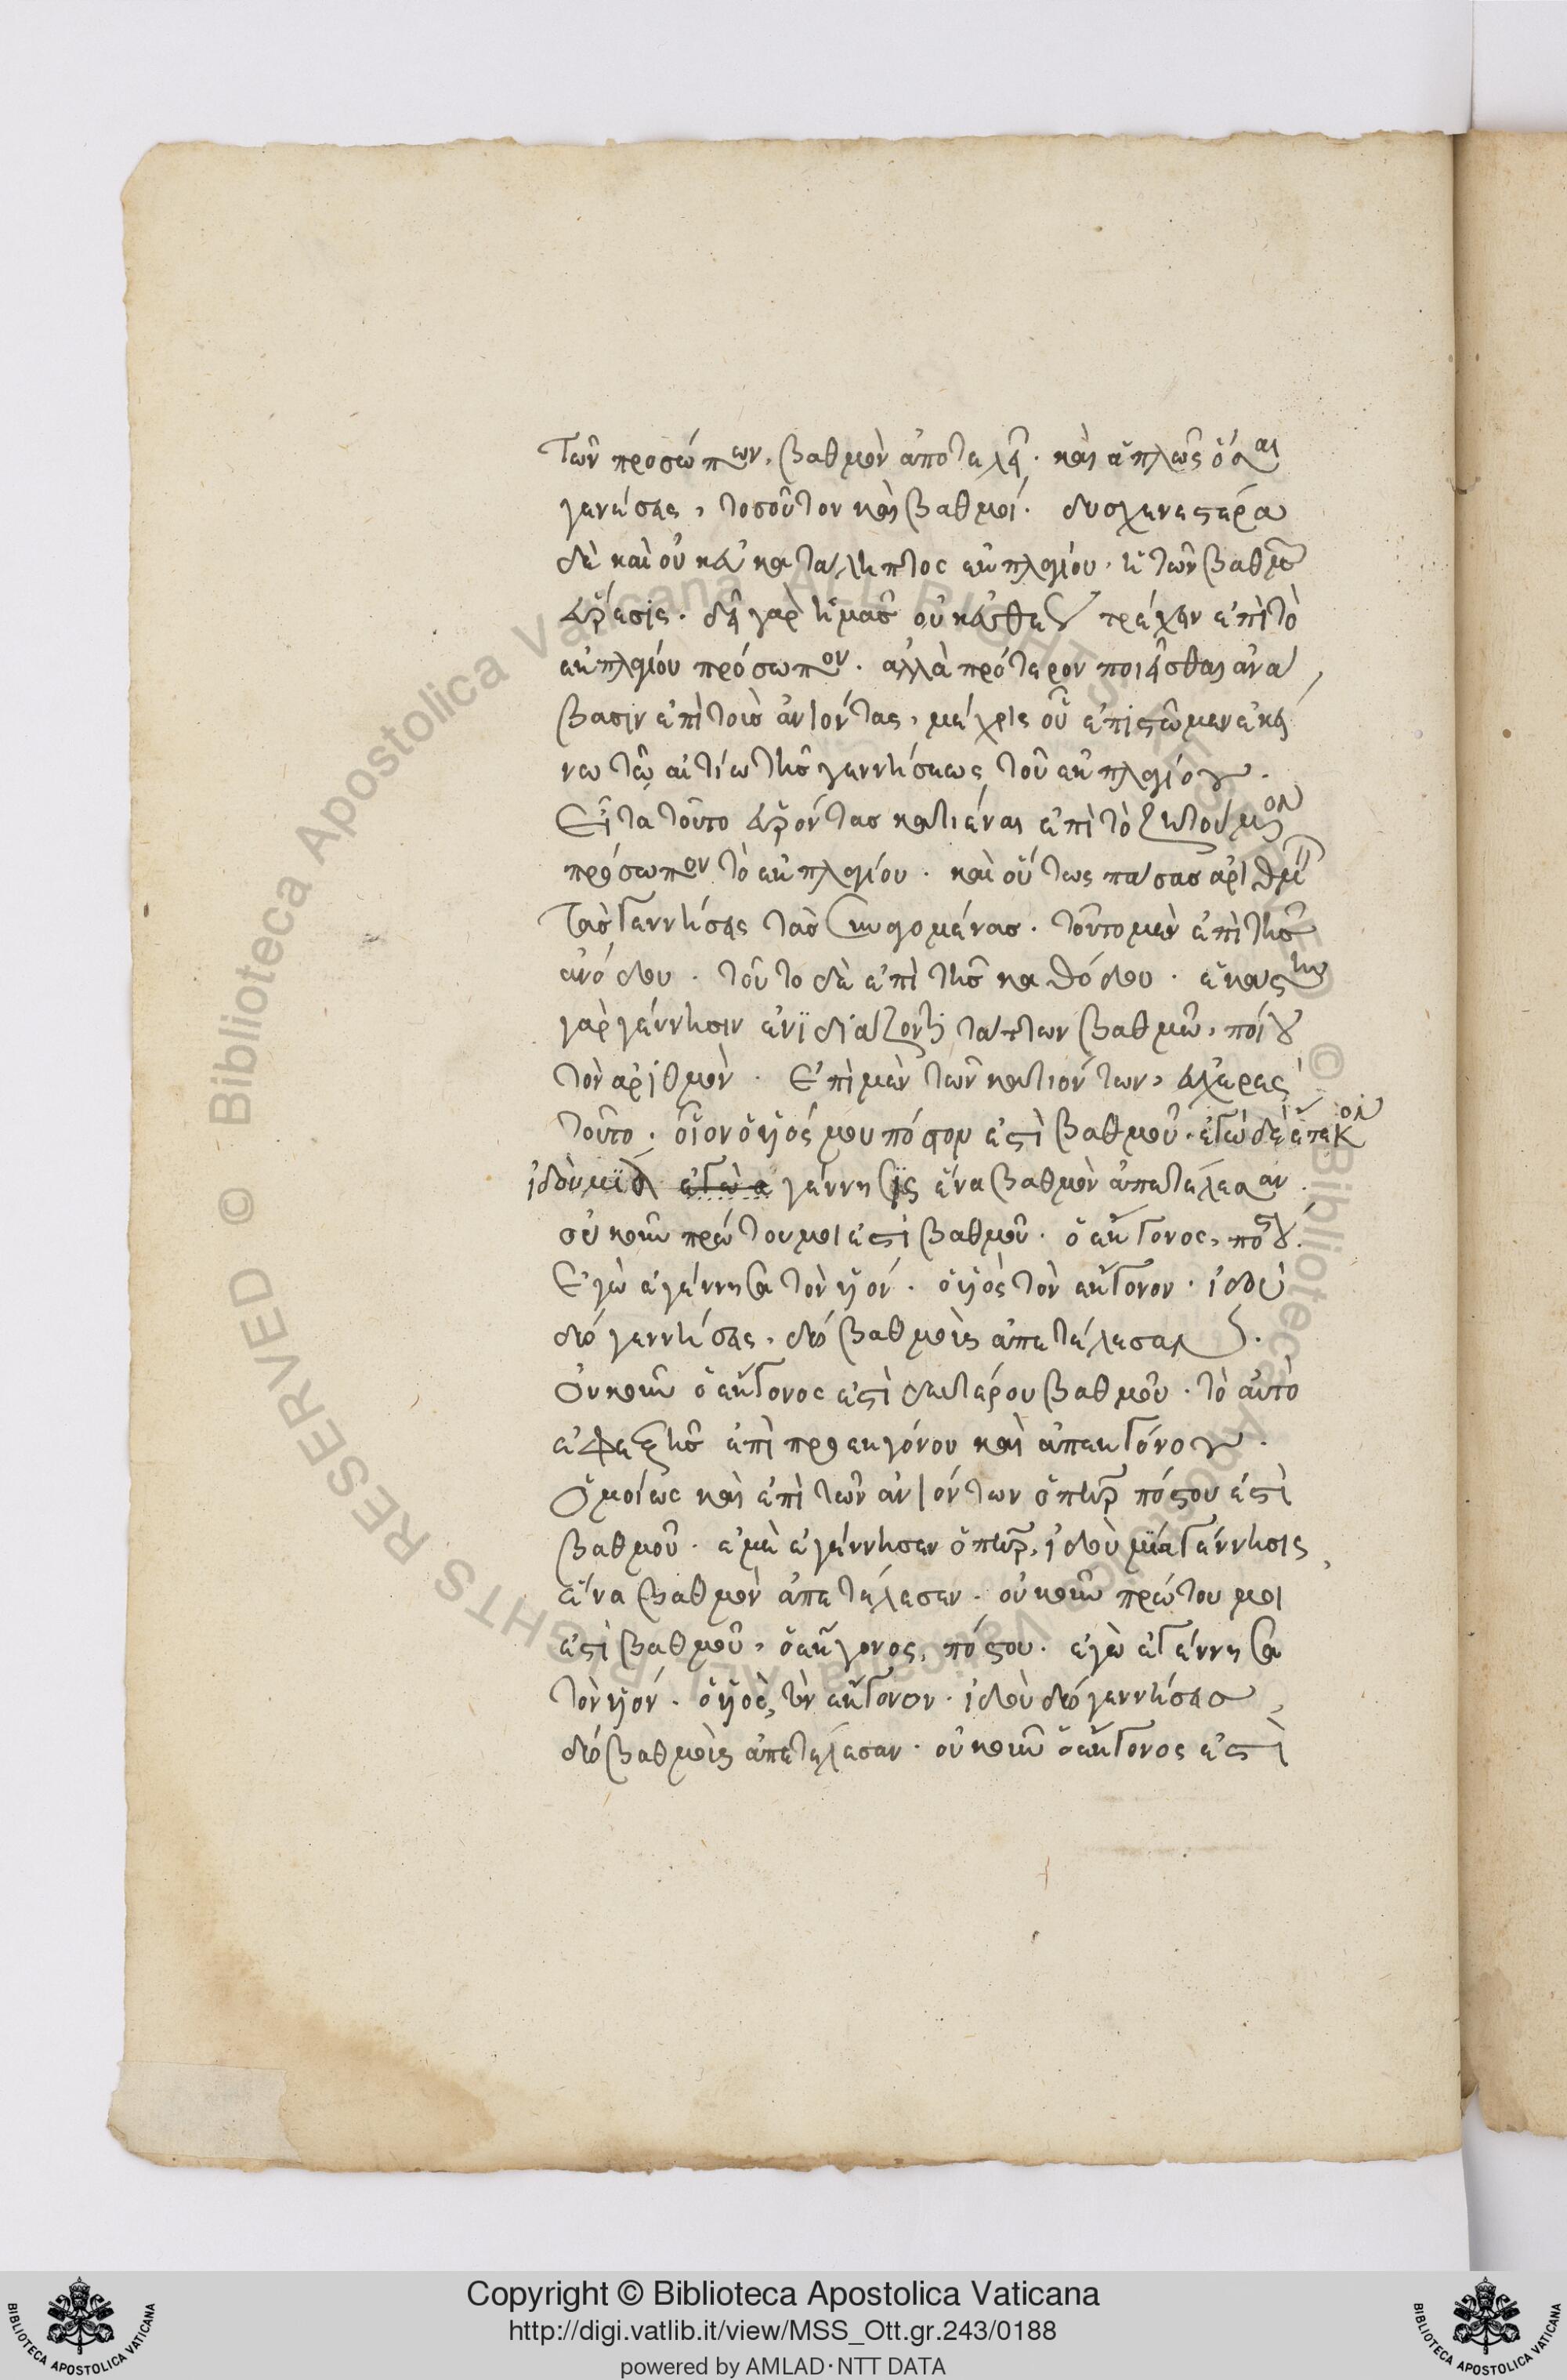 τῶν προσώπων, βαθμὸν ἀποτελεῖ. καὶ ἁπλῶς ὅσαι
γενέσεις, τοσοῦτον καὶ βαθμοί. δυσχερεστέρα
δὲ καὶ οὐκ εὐκατάληπτος ἐκ πλαγίου, ἡ τῶν βαθμῶν
εὕρεσις. δεῖ γὰρ ἡμᾶς οὐκ εὐθὺς τρέχειν ἐπὶ τὸ
ἐκ πλαγίου πρόσωπον. ἀλλὰ πρότερον ποιεῖσθαι ἀνά
βασιν ἐπὶ τοὺς ἀνιόντας, μέχρις οὗ ἐπιστῶμεν ἐκεί
νω τῶ αἰτίω τῆς γεννήσεως τοῦ ἐκ πλαγίου.
Εἶτα τοῦτο εὑρόντας κατιέναι ἐπὶ τὸ ζητούμενον
πρόσωπον τὸ ἐκ πλαγίου. καὶ οὕτως πάσας ἀριθμεῖν
τὰς γεννήσεις τὰς εὑρισκομένας. τοῦτο μὲν ἐπὶ τῆς
ἀνόδου. τοῦτο δὲ ἐπὶ τῆς καθόδου. ἑκάστην
γὰρ γέννησιν ἐνϊδιάζοντι τάττων βαθμῶ, ποίει
τὸν ἀριθμὸν. Ἐπὶ μὲν τῶν κατιόντων, εὐχερὲς
τοῦτο. οἷον ὁ υἱός μου πόστου ἐστὶ βαθμοῦ. ἐγὼ δὲ ἔτεκον
ἰδοὺ μία ἐγὼ ἐ γέννησϊς ἕνα βαθμὸν ἀπετέλεσαν.
οὐκοῦν πρώτου μοι ἐστὶ βαθμοῦ. ὁ ἔκγονος, πόστου.
Ἐγὼ ἐγέννησα τὸν υἱόν. ὁ υἱὸς τὸν ἔκγονον. ἰδοὺ
δύο γεννήσεις, δύο βαθμοὺς ἀπετέλεσαν.
Οὐκοῦν ὁ ἔκγονος ἐστὶ δευτέρου βαθμοῦ. τὸ αὐτὸ
ἐφεξῆς ἐπὶ προεκγόνου καὶ ἀπεκγόνου.
Ὁμοίως καὶ ἐπὶ τῶν ἀνιόντων ὁ πατὴρ πόστου ἐστὶ
βαθμοῦ. ἐμὲ ἐγέννησεν ὁ πατὴρ, ἰδοὺ μία γέννησις,
ἕνα βαθμὸν ἀπετέλεσεν. οὐκοῦν πρώτου μοι
ἐστὶ βαθμοῦ, ὁ ἔκγονος, πόστου. ἐγὼ ἐγέννησα
τὸν υἱόν. ὁ υἱὸς, τὸν ἔκγονον. ἰδοὺ δύο γεννήσεις,
δύο βαθμοὺς ἀπετέλεσαν. οὐκοῦν ὁ ἔκγονος ἐστὶ
Copyright © Biblioteca Apostolica Vaticana
http://digi.vatlib.it/view/MSS_Ott.gr.243/0188
powered by AMLAD·NTT DATA